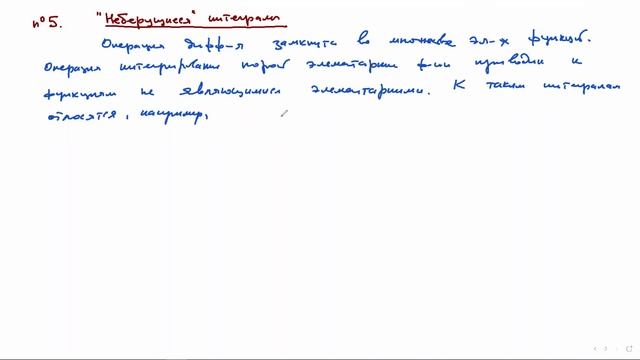 n°5. "Неберущиеся" интегралы
Операция дифф-я замкнута во множестве эл-х функций.
Операция интегрирования порой элементарных ф-ий приводит к
функциям не являющимися элементарными. К таким интегралам
относятся, например,